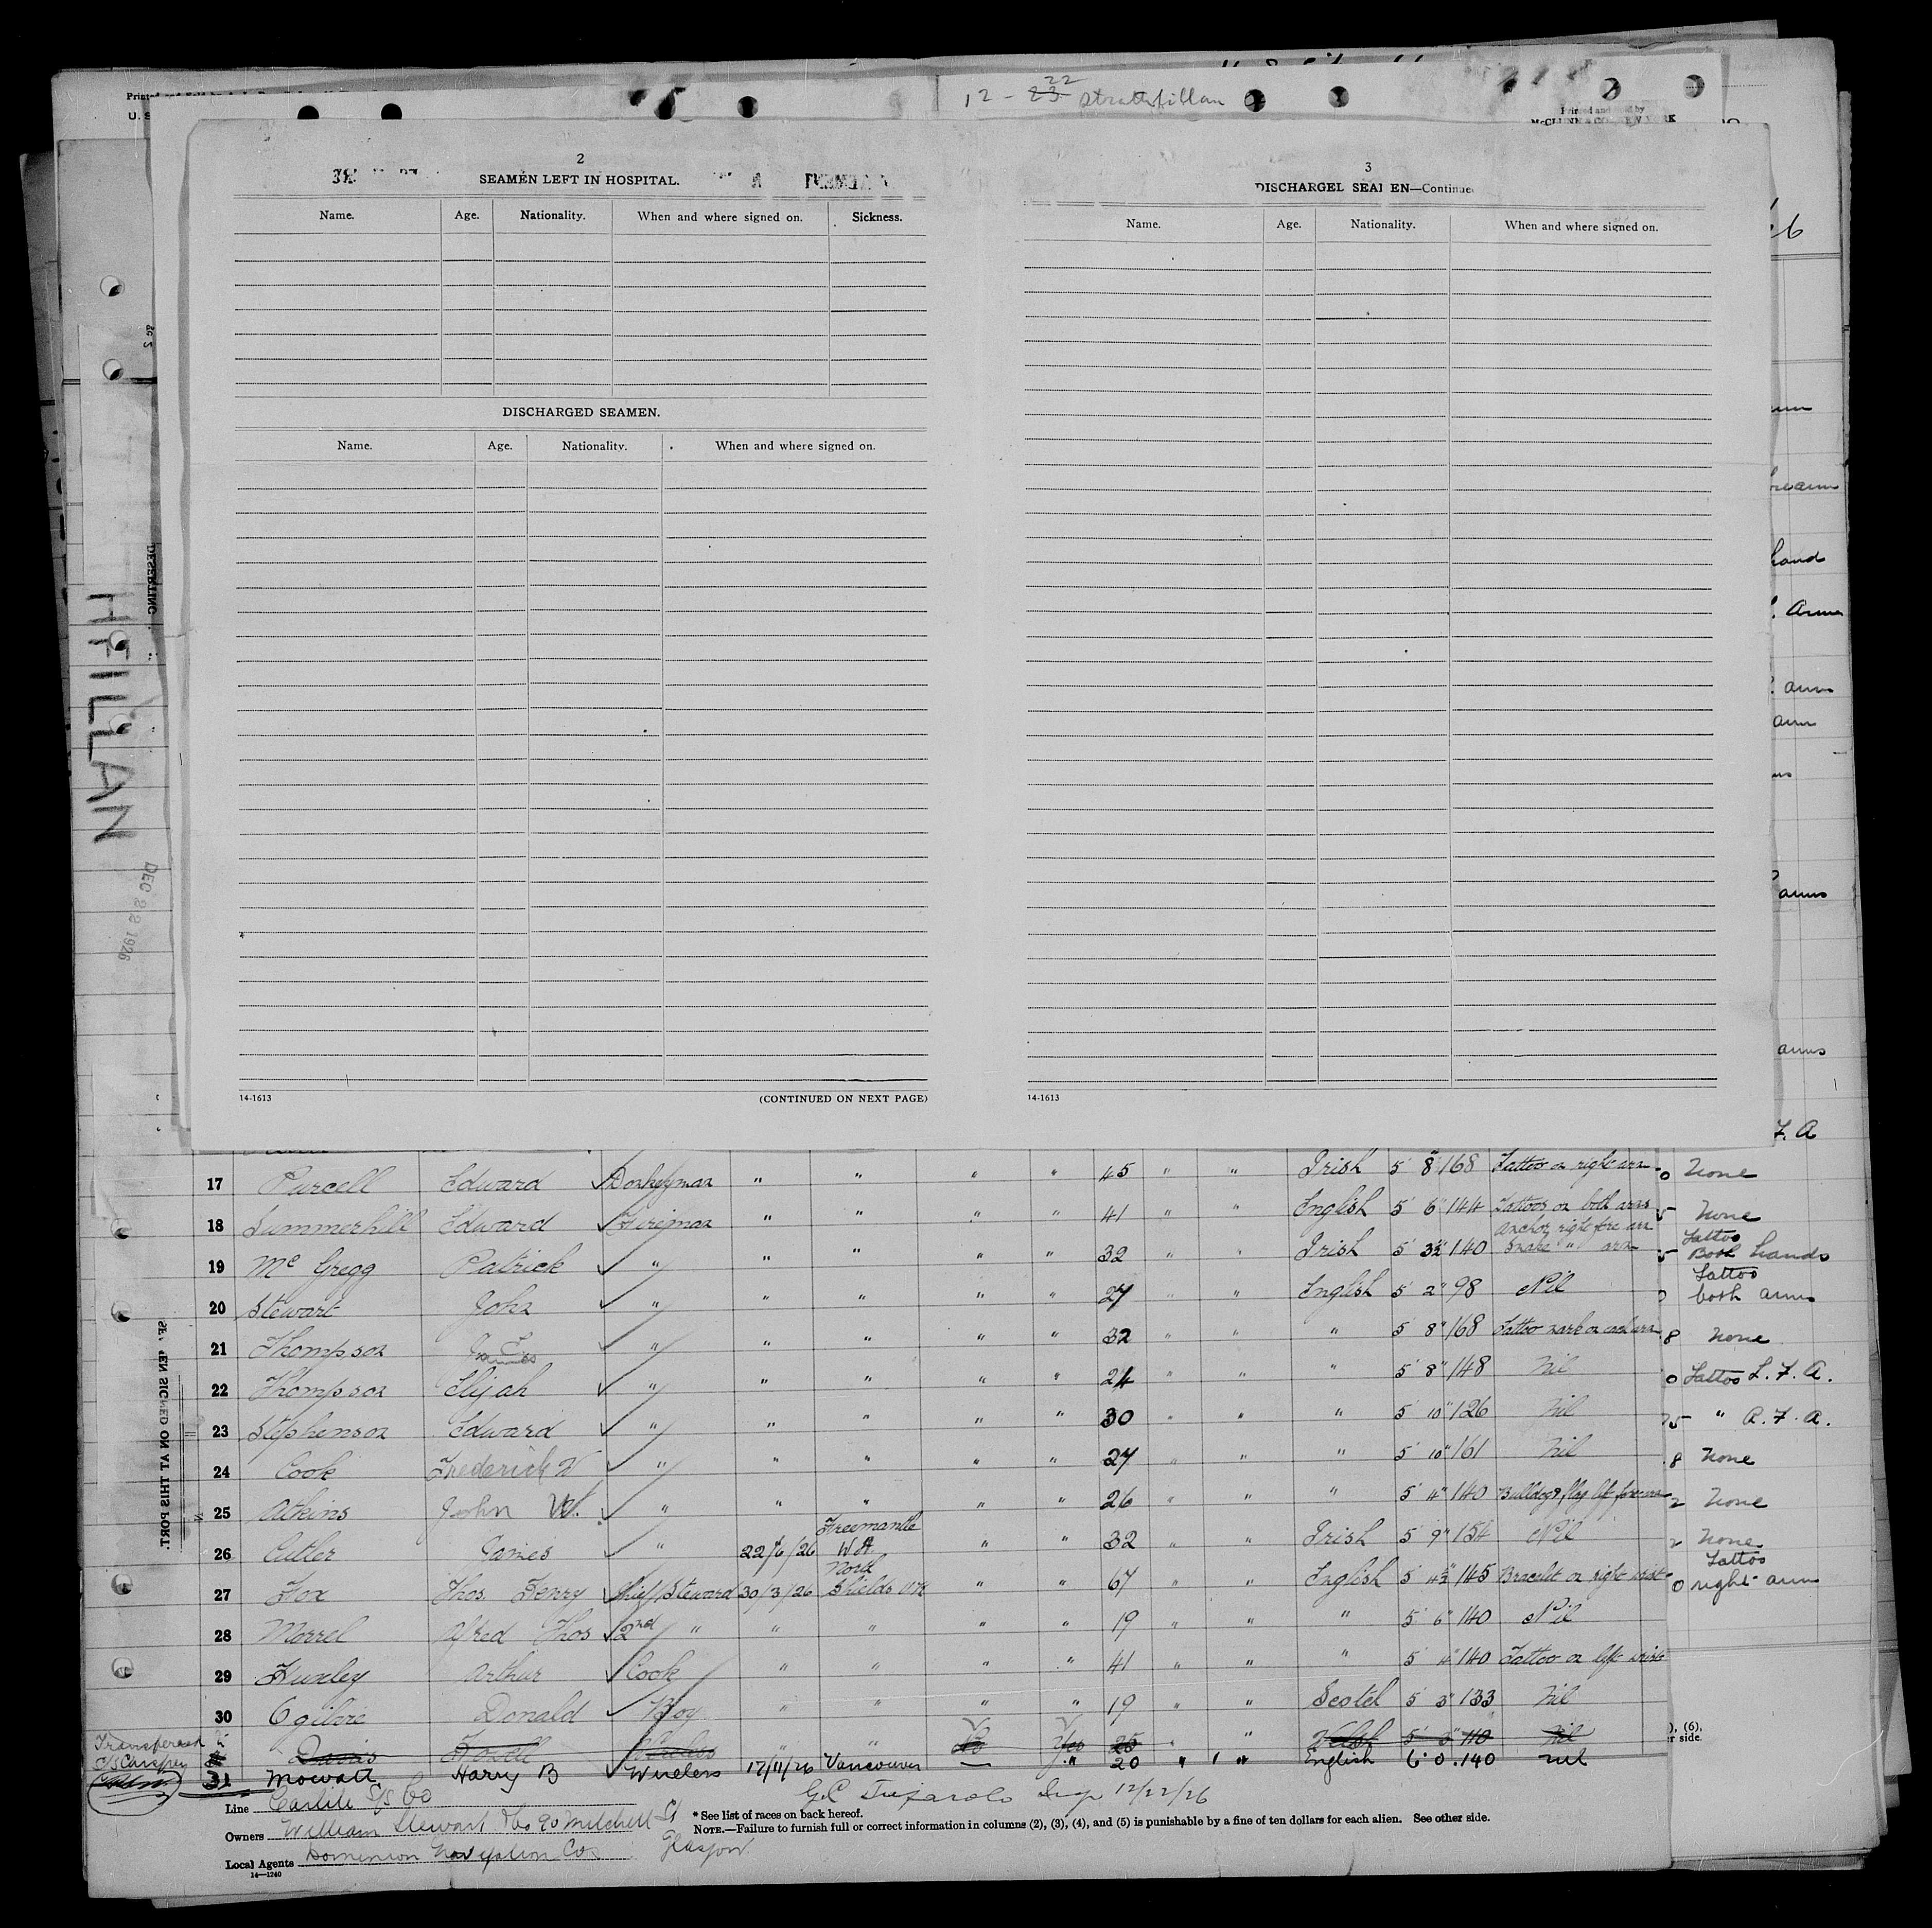 12 - 22 23 Strathfillan
Printed and Sold by
McCLUNN & CO., NEW YORK
2
SEAMEN LEFT IN HOSPITAL.
Name. Age. Nationality. When and where signed on. Sickness.
DISCHARGED SEAMEN.
Name. Age. Nationality. When and where signed on.
14-1613 (CONTINUED ON NEXT PAGE)
3
DISCHARGED SEAMEN—Continued
Name. Age. Nationality. When and where signed on.
14-1613
HFILLAN
DEC 22 1926
DESERTING
SEAMEN SIGNED ON AT THIS PORT.
arm
forearm
hand
arms
arm
arm
arms
arms
F. A
17 Purcell Edward Donkeyman " " " " 45 " " Irish 5' 8" 168 Tattoo on right arm
18 Summerhill Edward Fireman " " " " 41 " " English 5' 6" 144 Tattoos on both arms
19 Mc Gregg Patrick " " " " " 32 " " Irish 5' 3½" 140 anchor right fore arm Snake " arm
20 Stewart John " " " " " 27 " " English 5' 2" 98 Nil
21 Thompson James " " " " " 32 " " " 5' 8" 168 Tattoo mark on each arm
22 Thompson Elijah " " " " " 24 " " " 5' 8" 148 Nil
23 Stephenson Edward " " " " " 30 " " " 5' 10" 126 Nil
24 Cook Frederick W " " " " " 27 " " " 5' 10" 161 Nil
25 Atkins John W. " " " " " 26 " " " 5' 4" 140 Bulldog & flag left forearm
26 Cutler James " 22/6/26 Freemantle W.A. " " 32 " " Irish 5' 9" 154 Nil
27 Fox Thos. Henry Chief Steward 30/3/26 North Shields " " 67 " " English 5' 4½" 145 Bracelet on right wrist
28 Morrel Alfred Thos 2nd " " " " " 19 " " " 5' 6" 140 Nil
29 Huxley Arthur Cook " " " " 41 " " " 5' 4" 140 Tattoo on left wrist
30 Ogilvie Donald Boy " " " " 19 " " Scotch 5' 3" 133 Nil
Davis Wireless " " No Yes 25 " " Welsh 5' 5" 110 Nil
31 Mowatt Harry B Wireless 17/11/26 Vancouver — " 20 " " English 6' 0 . 140 nil
None
None
Tattoo
Both hands
Tattoo
both arms
None
Tattoo L. F. A.
" R. F. A.
None
None
None
Tattoo
right arm
Transferred
Line Carlile S/S Co
Owners William Stewart & Co 90 Mitchell St Glasgow
Local Agents Dominion Navigation Co.
14—1240
Insp 12/22/26
* See list of races on back hereof.
NOTE.—Failure to furnish full or correct information in columns (2), (3), (4), and (5) is punishable by a fine of ten dollars for each alien. See other side.
), (6),
er side.